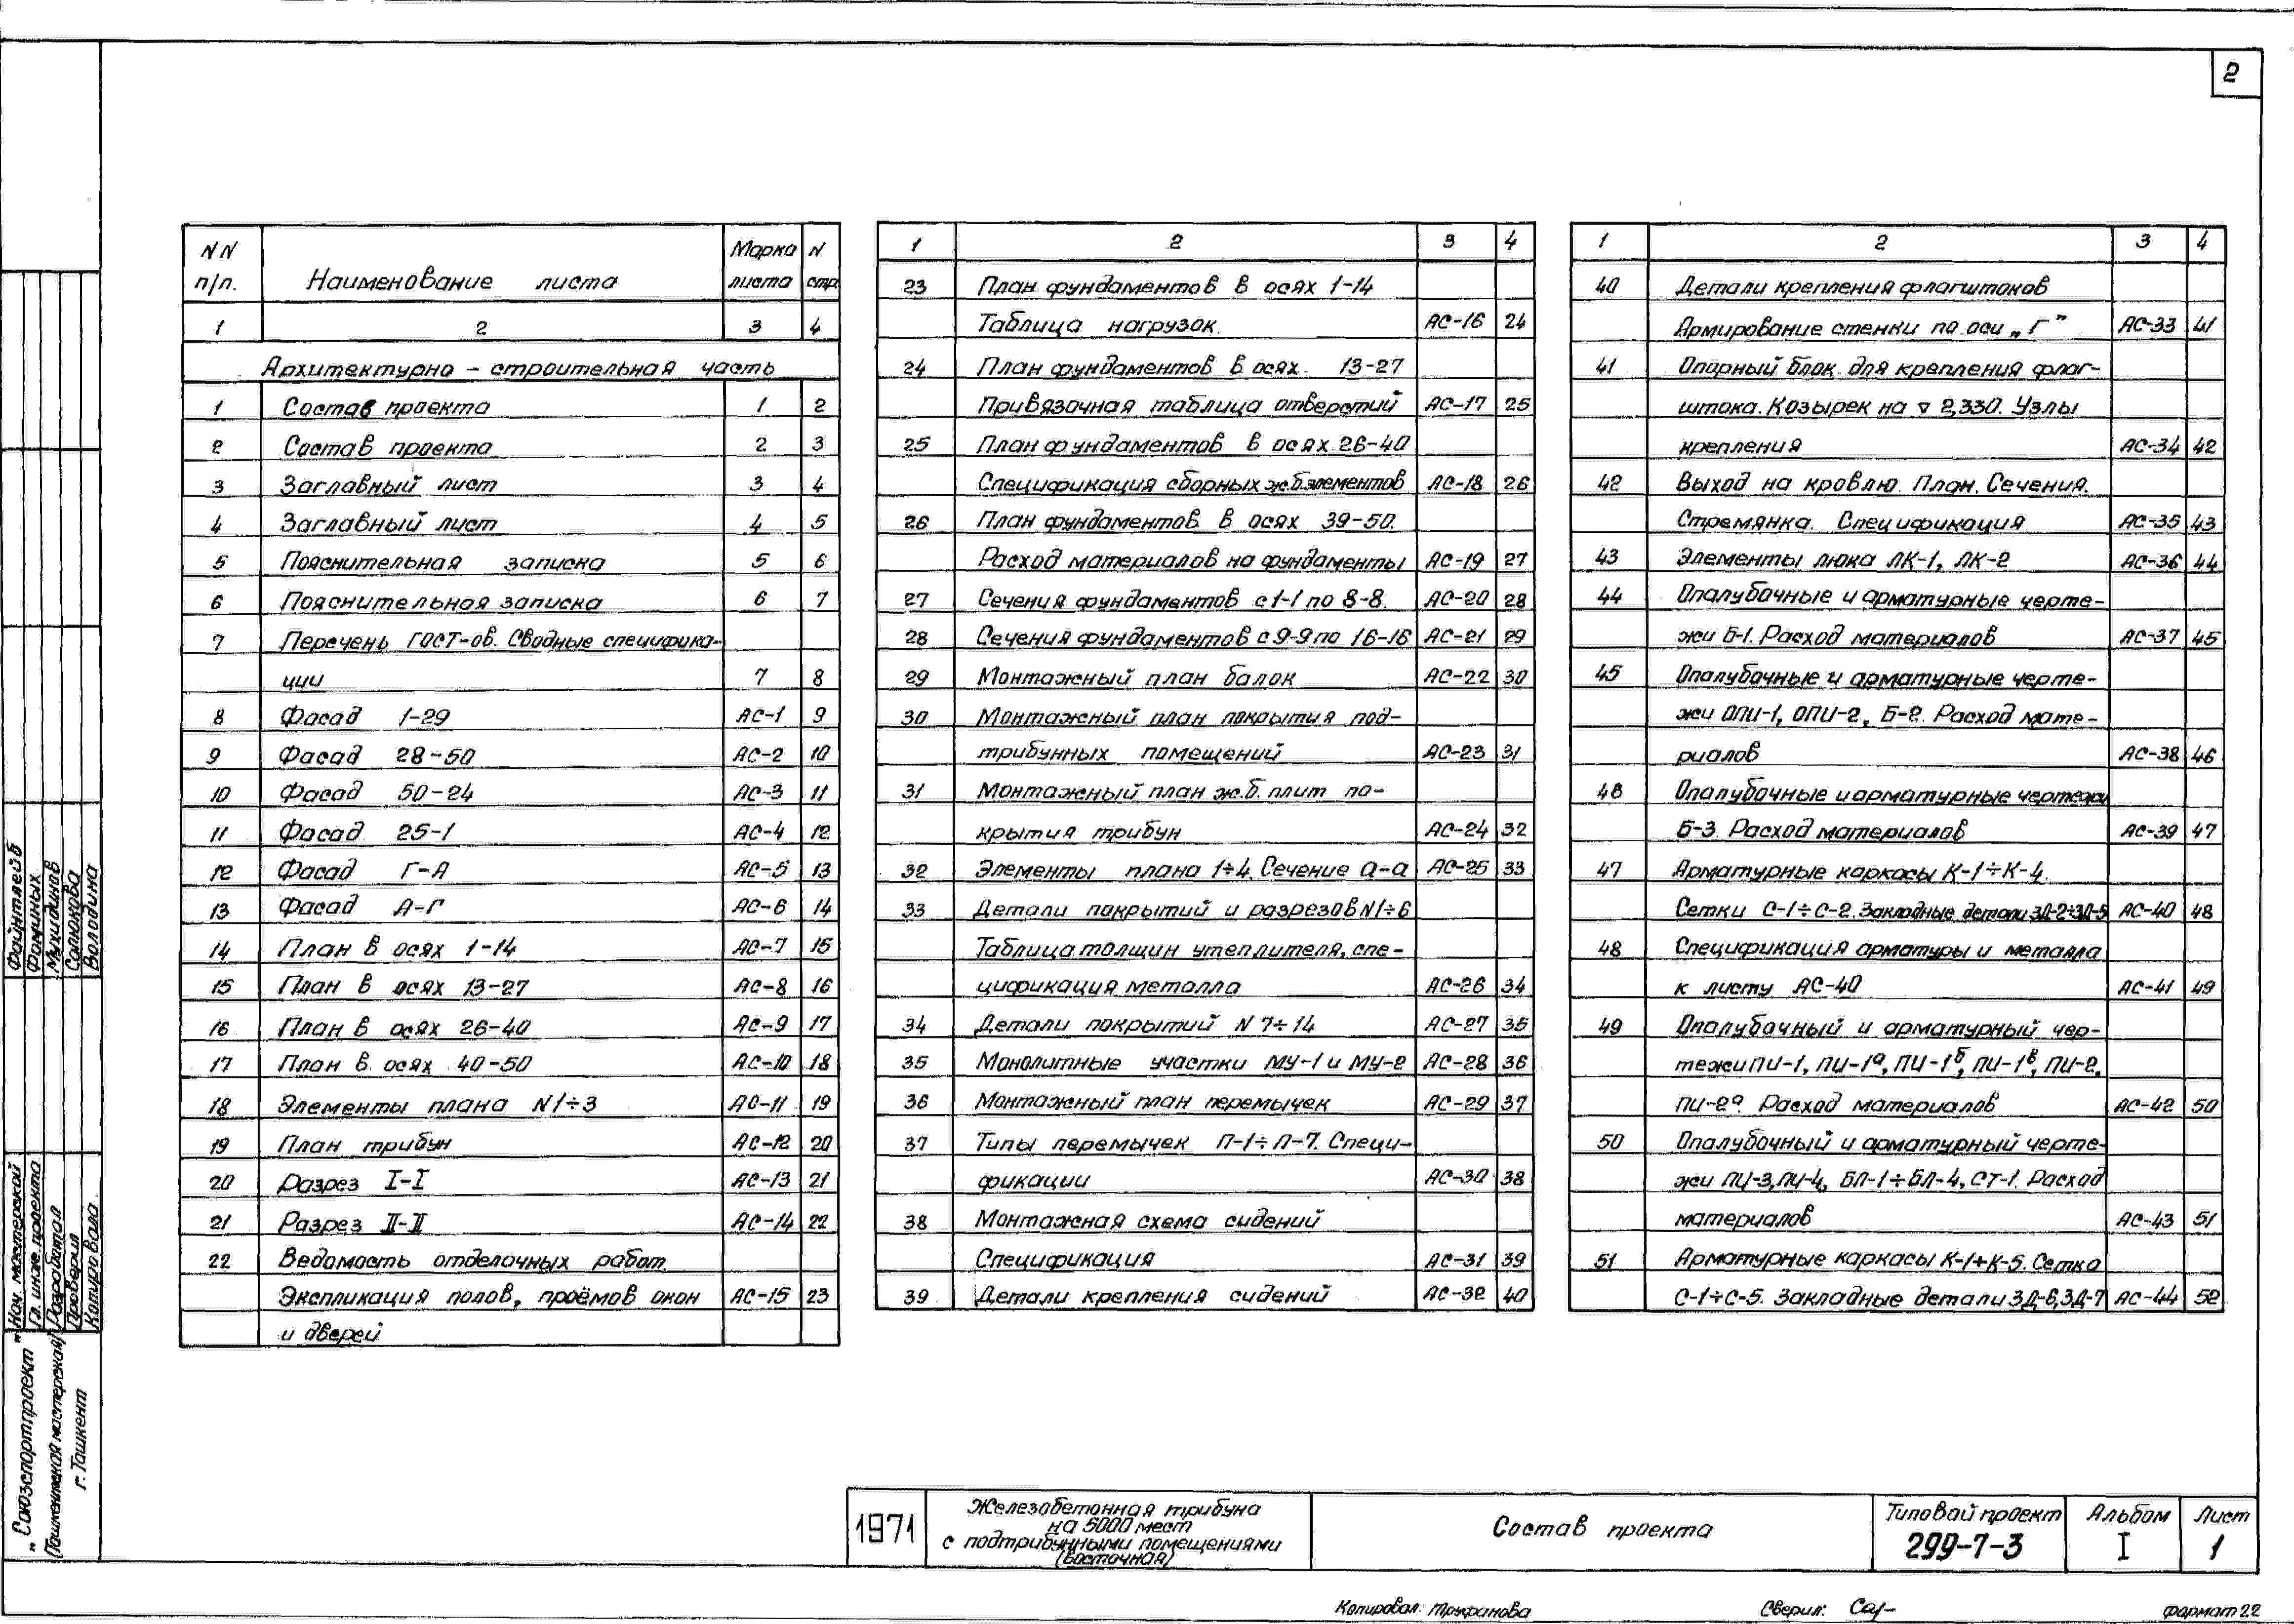 2
NN п/п. Наименование листа Марка листа N стр
1 2 3 4
Архитектурно – строительная часть
1 Состав проекта 1 2
2 Состав проекта 2 3
3 Заглавный лист 3 4
4 Заглавный лист 4 5
5 Пояснительная записка 5 6
6 Пояснительная записка 6 7
7 Перечень ГОСТ-ов. Сводные специфика-
ции 7 8
8 Фасад 1-29 АС-1 9
9 Фасад 28-50 АС-2 10
10 Фасад 50-24 АС-3 11
11 Фасад 25-1 АС-4 12
12 Фасад Г-А АС-5 13
13 Фасад А-Г АС-6 14
14 План в осях 1-14 АС-7 15
15 План в осях 13-27 АС-8 16
16 План в осях 26-40 АС-9 17
17 План в осях 40-50 АС-10 18
18 Элементы плана N1÷3 АС-11 19
19 План трибун АС-12 20
20 Разрез I-I АС-13 21
21 Разрез II-II АС-14 22
22 Ведомость отделочных работ.
Экспликация полов, проёмов окон АС-15 23
и дверей
1 2 3 4
23 План фундаментов в осях 1-14
Таблица нагрузок. АС-16 24
24 План фундаментов в осях 13-27
Привязочная таблица отверстий АС-17 25
25 План фундаментов в осях 26-40
Спецификация сборных ж.б.элементов АС-18 26
26 План фундаментов в осях 39-50.
Расход материалов на фундаменты АС-19 27
27 Сечения фундаментов с 1-1 по 8-8. АС-20 28
28 Сечения фундаментов с 9-9 по 16-16 АС-21 29
29 Монтажный план балок АС-22 30
30 Монтажный план покрытия под-
трибунных помещений АС-23 31
31 Монтажный план ж.б. плит по-
крытия трибун АС-24 32
32 Элементы плана 1÷4. Сечение а-а АС-25 33
33 Детали покрытий и разрезов N1÷6
Таблица толщин утеплителя, спе-
цификация металла АС-26 34
34 Детали покрытий N 7÷14 АС-27 35
35 Монолитные участки МУ-1 и МУ-2 АС-28 36
36 Монтажный план перемычек АС-29 37
37 Типы перемычек П-1÷П-7. Специ-
фикации АС-30 38
38 Монтажная схема сидений
Спецификация АС-31 39
39 Детали крепления сидений АС-32 40
1 2 3 4
40 Детали крепления флагштоков
Армирование стенки по оси „Г" АС-33 41
41 Опорный блок для крепления флаг-
штока. Козырек на ▽ 2,330. Узлы
крепления АС-34 42
42 Выход на кровлю. План. Сечения.
Стремянка. Спецификация АС-35 43
43 Элементы люка ЛК-1, ЛК-2 АС-36 44
44 Опалубочные и арматурные черте-
жи Б-1. Расход материалов АС-37 45
45 Опалубочные и арматурные черте-
жи ОПИ-1, ОПИ-2, Б-2. Расход мате-
риалов АС-38 46
46 Опалубочные и арматурные чертежи
Б-3. Расход материалов АС-39 47
47 Арматурные каркасы К-1÷К-4.
Сетки С-1÷С-2. Закладные детали ЗД-2÷ЗД-5 АС-40 48
48 Спецификация арматуры и металла
к листу АС-40 АС-41 49
49 Опалубочный и арматурный чер-
тежи ПИ-1, ПИ-1а, ПИ-1б, ПИ-1в, ПИ-2,
ПИ-2а. Расход материалов АС-42 50
50 Опалубочный и арматурный черте-
жи ПИ-3, ПИ-4, БЛ-1÷БЛ-4, СТ-1. Расход
материалов АС-43 51
51 Арматурные каркасы К-1÷К-5. Сетка
С-1÷С-5. Закладные детали ЗД-6, ЗД-7 АС-44 52
Нач. мастерской Файнтлейб
Гл. инж. проекта Фоминых
Разработал Мухидинов
Проверил Солюкова
Копировала Володина
„Союзспортпроект"
(Ташкентская мастерская)
г. Ташкент
1971
Железобетонная трибуна
на 5000 мест
с подтрибунными помещениями
(восточная)
Состав проекта
Типовой проект
299-7-3
Альбом
I
Лист
1
Копировал: Труфанова Сверил: формат 22